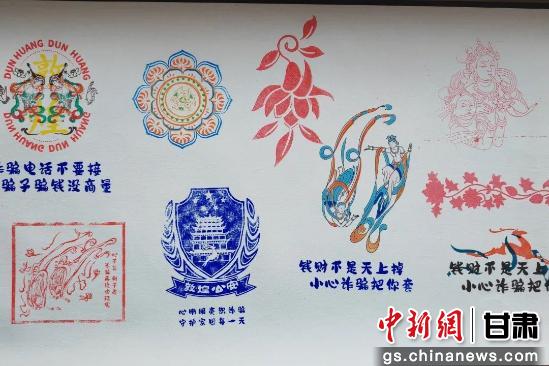 DUN HUANG DUN HUANG
敦煌
DUN HUANG DUN HUANG
诈骗电话不要接
骗子骗钱没商量
敦煌公安
心明眼亮识诈骗
守护家园每一天
钱财不是天上掉
小心诈骗把你套
钱财不是天上掉
小心诈骗把你套
中新网 甘肃
gs.chinanews.com